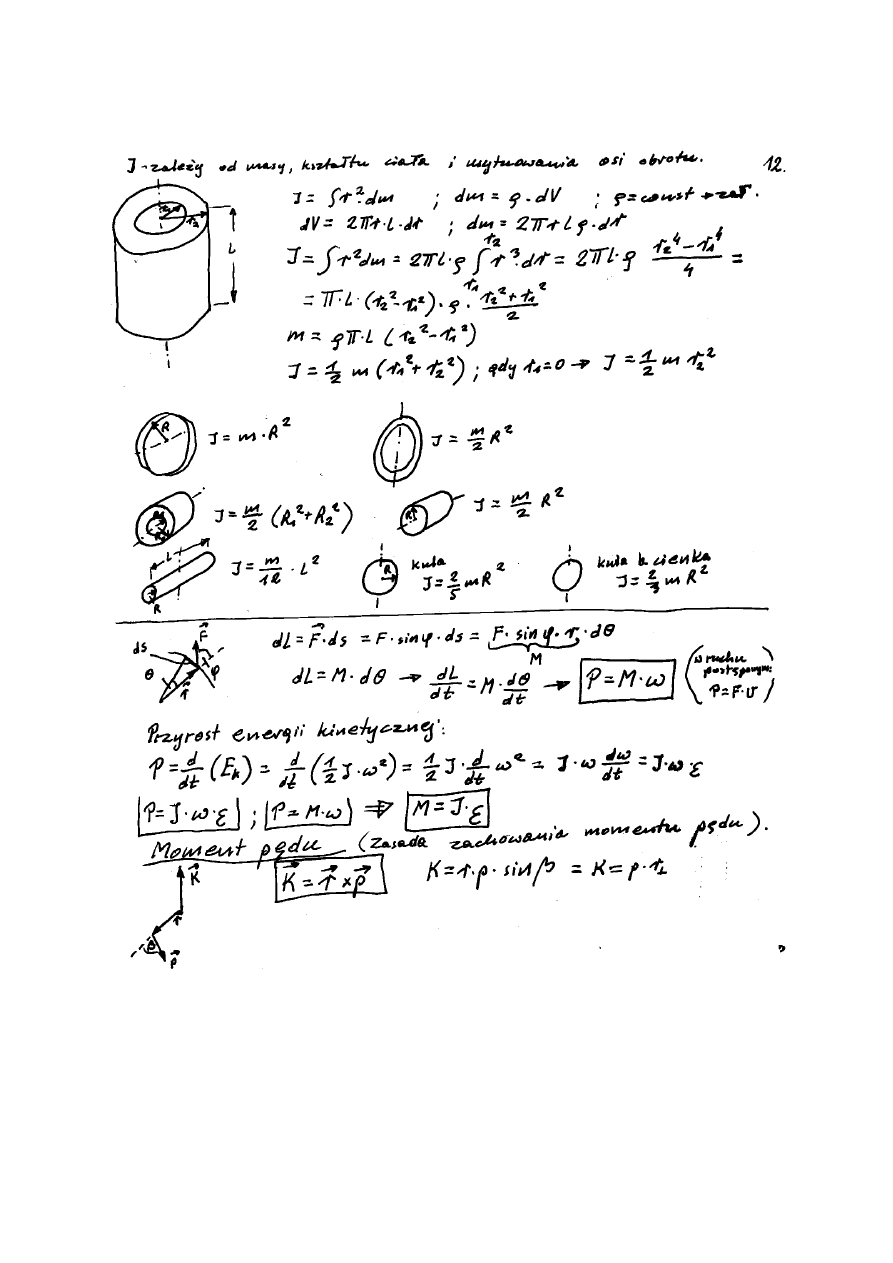 J - zależy od masy, kształtu ciała i usytuowania osi obrotu. 12.
J = ∫r²·dm ; dm = ρ·dV ; ρ = const → zał.
dV = 2πr·L·dr ; dm = 2πrLρ·dr
r₂ r₁ L
J = ∫r²dm = 2πL·ρ ∫_{r₁}^{r₂} r³·dr = 2πL·ρ (r₂⁴ - r₁⁴)/4 =
= π·L·(r₂² - r₁²)·ρ·(r₂² + r₁²)/2
m = ρπ·L (r₂² - r₁²)
J = 1/2 m (r₁² + r₂²) ; gdy r₁ = 0 → J = 1/2 m r₂²
R J = m·R² J = m/2 R²
R₁ R₂ J = m/2 (R₁² + R₂²) R J = m/2 R²
L R J = m/12 · L² R kula J = 2/5 mR² kula b. cienka J = 2/3 mR²
ds F⃗ θ r⃗ φ
dL = F⃗·ds = F·sinφ·ds = F·sinφ·r·dθ
M
dL = M·dθ → dL/dt = M·dθ/dt → P = M·ω (w ruchu postępowym: P = F·v)
Przyrost energii kinetycznej:
P = d/dt (Eₖ) = d/dt (1/2 J·ω²) = 1/2 J·d/dt ω² = J·ω dω/dt = J·ω·ε
P = J·ω·ε ; P = M·ω ⇒ M = J·ε
Moment pędu (zasada zachowania momentu pędu).
K⃗ = r⃗ × p⃗ K = r·p·sinβ = K = p·r⊥
K⃗ r β p⃗